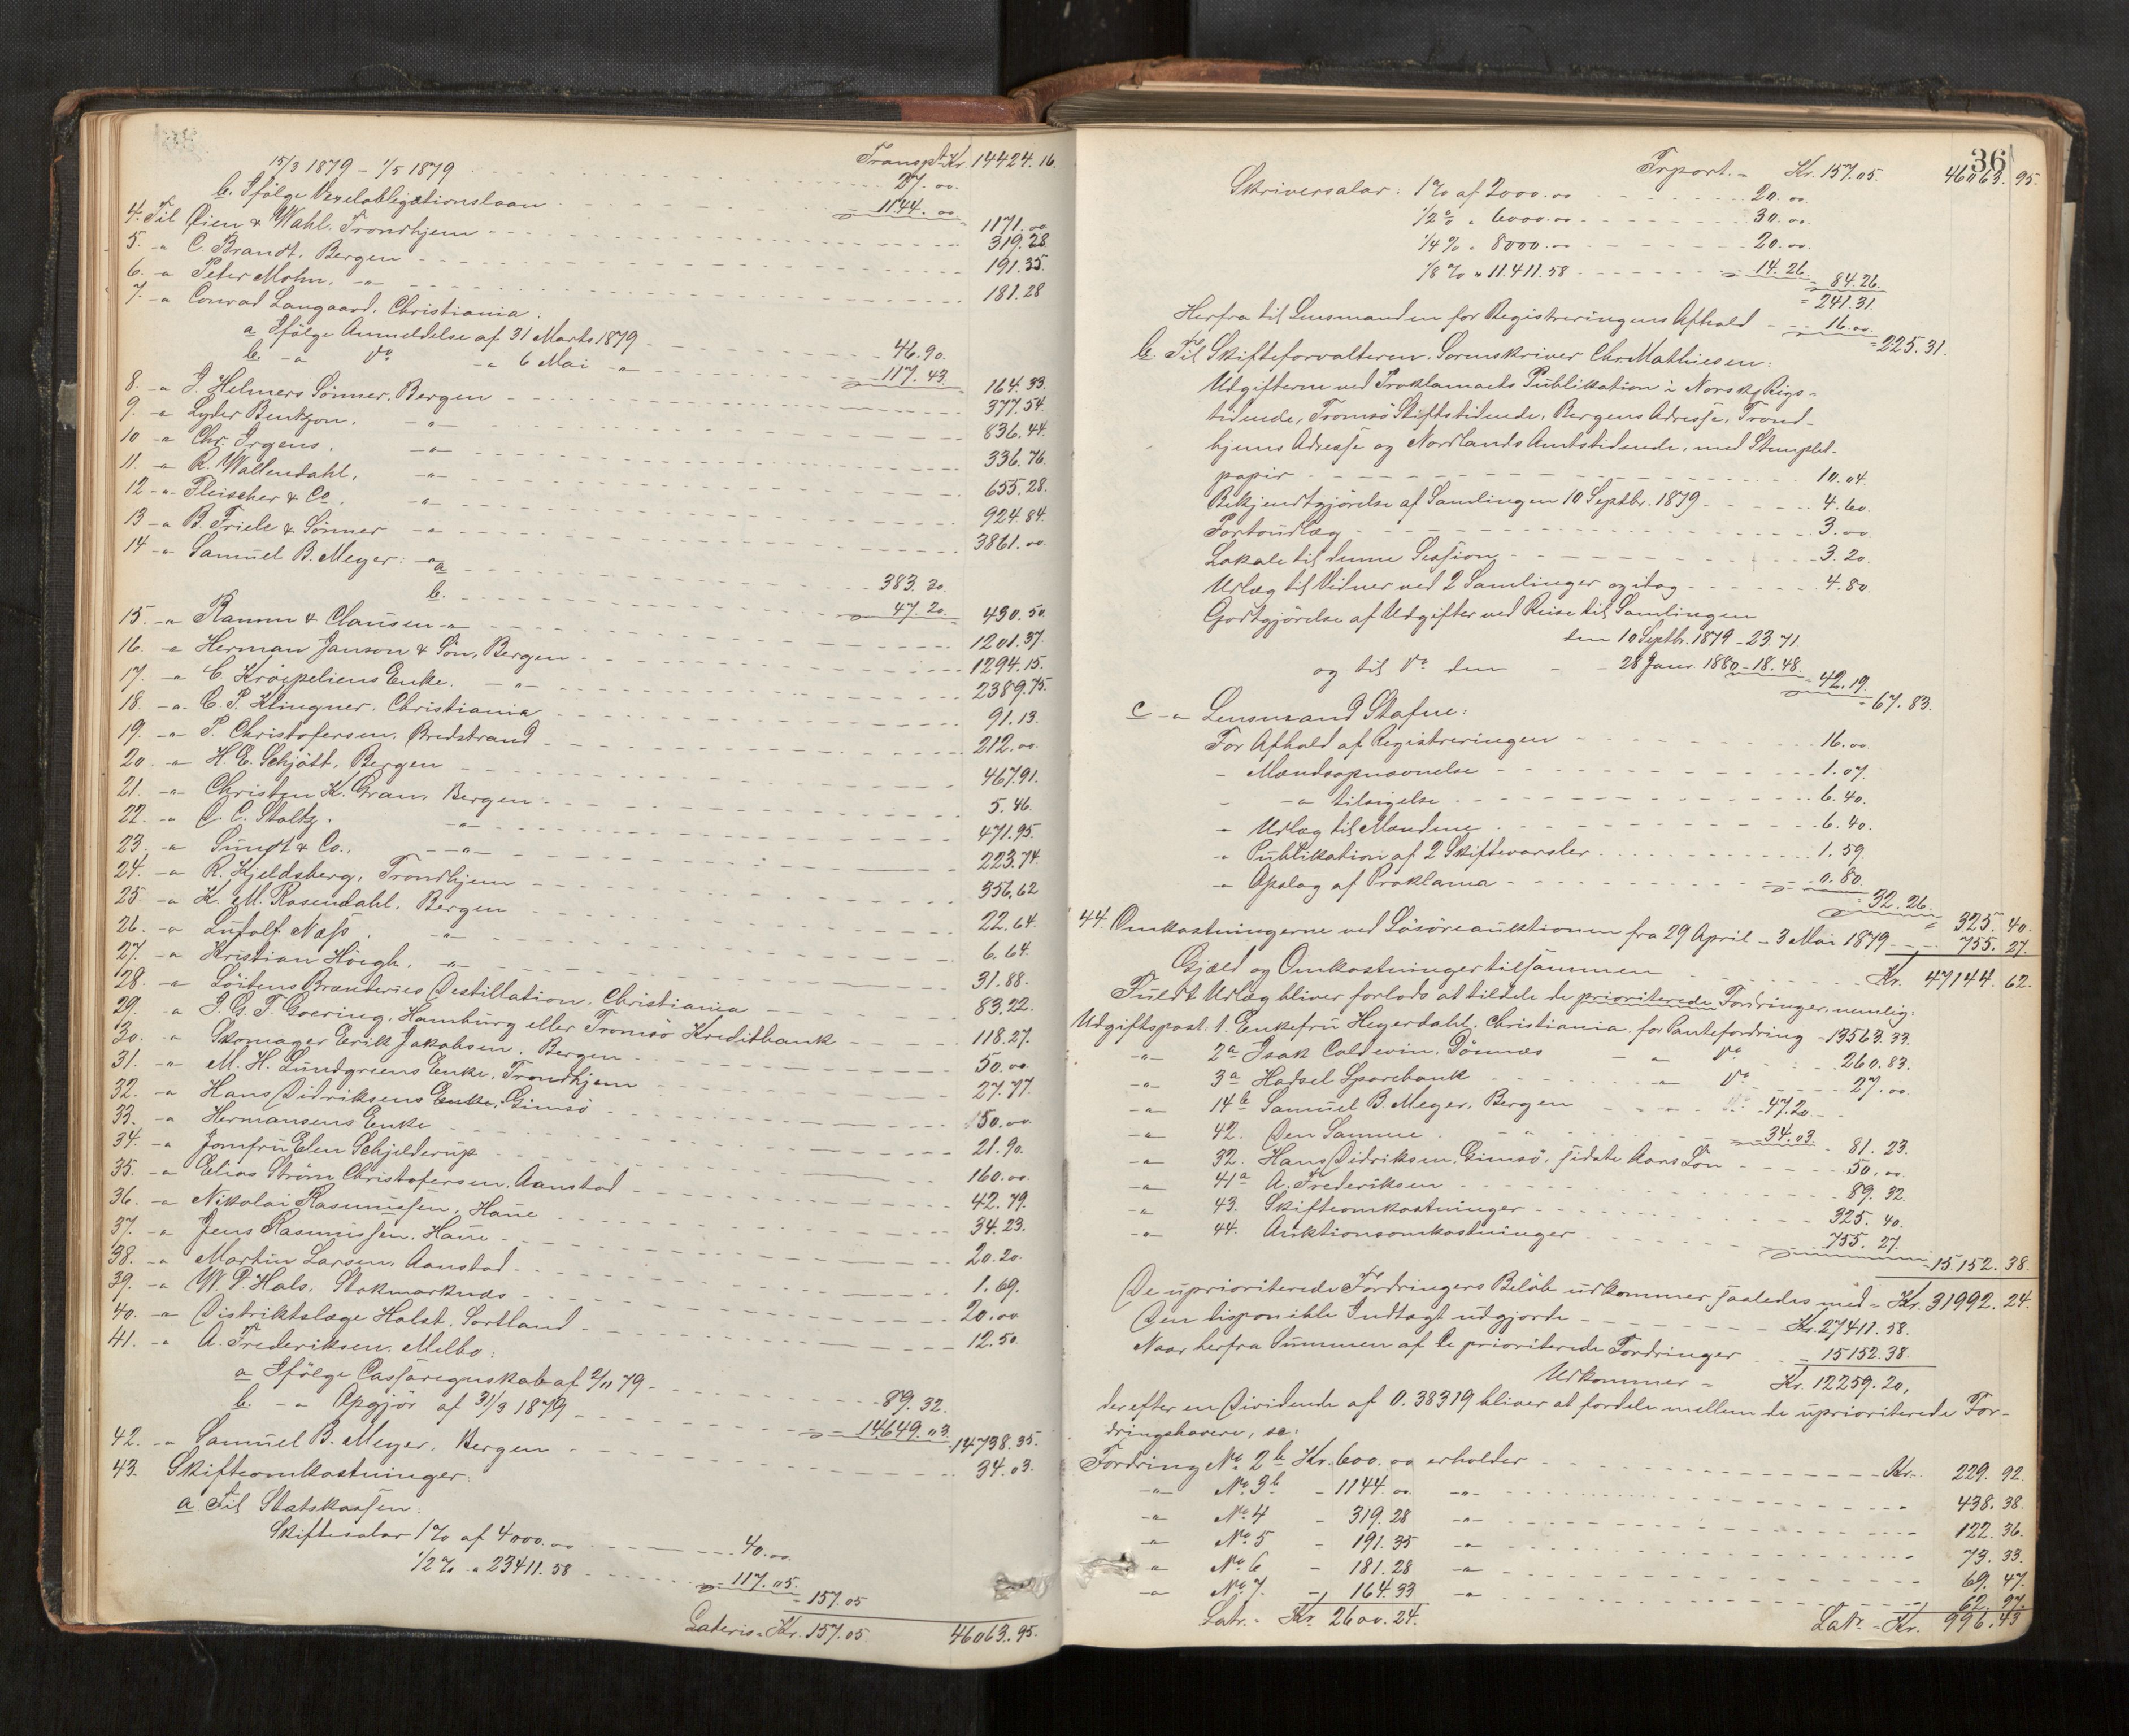 Transpt Kr. 14424.16.
15/3 1879 – 1/5 1879 27.00.
b. Ifølge Vexelobligationslaan 1144.00 1171.00
4. Til Øien & Wahl. Trondhjem 319.28
5. -"- C. Brandt. Bergen 191.35.
6. -"- Peter Mohn. -"- 181.28
7. -"- Conrad Langaard. Christiania.
a Ifølge Anmeldelse af 31 Marts 1879 46.90.
b. -"- Do -"- 6 Mai -"- 117.43. 164.33.
8. -"- J. Helmers Sønner. Bergen 377.54.
9. -"- Lyder Bentzon. -"- 836.44.
10 -"- Chr. Irgens. -"- 336.76.
11. -"- R. Wallendahl. -"- 655.28.
12 -"- Fleischer & Co. -"- 924.84.
13 -"- B. Friele & Sønner -"- 3861.00.
14 -"- Samuel B. Meyer: -"-
a 383.30.
b. 47.20. 430.50.
15. -"- Ramm & Clausen -"- 1201.37.
16. -"- Herman Janson & Søn, Bergen 1294.15.
17. -"- C. Krøepeliens Enke. -"- 2389.75.
18. -"- C. P. Klingner. Christiania 91.13.
19. -"- P. Christofersen, Bredstrand 212.00.
20. -"- H. E. Schjøtt, Bergen 467.91.
21. -"- Christen K. Gran, Bergen 5.46.
22. -"- C. C. Stoltz. -"- 471.95.
23. -"- Sundt & Co. -"- 223.74.
24. -"- R. Kjeldsberg, Trondhjem 356.62
25. -"- K. M. Rosendahl. Bergen 22.64.
26. -"- Ludolf Næss. -"- 6.64.
27. -"- Kristian Høegh. -"- 31.88.
28. -"- Löitens Brænderies Destillation. Christiania 83.22.
29. -"- J. G. T. Goering, Hamburg eller Tromsö Kreditbank 118.27.
30. -"- Skomager Erik Jakobsen. Bergen 50.00
31. -"- M. H. Lundgreens Enke, Trondhjem 27.77.
32. -"- Hans Didriksens Enke, Gimsö 50.00
33. -"- Hermansens Enke 21.90.
34. -"- Jomfru Elen Schjelderup 160.00.
35. -"- Elias Strøm Christofersen, Aanstad 42.79.
36. -"- Nikolai Rasmussen, Haue 34.23.
37. -"- Jens Rasmussen. Haue 20.20.
38. -"- Martin Larsen, Aanstad 1.69.
39. -"- W. D. Hals. Stokmarknæs 20.00
40. -"- Distriktslæge Holst. Sortland 12.50.
41. -"- A. Frederiksen. Melbo:
a Ifølge Cassaregnskab af 2/11 79 89.32.
b. -"- Opgjør af 31/3 1879 14649.03. 14738.35.
42. -"- Samuel B. Meyer. Bergen 34.03.
43. Skifteomkostninger:
a Til Statskassen.
Skiftesalar 1% af 4000.00 40.00.
1/2% -"- 23411.58 117.05. 157.05
Lateris. Kr. 157.05 46063.95.
36
Trport. Kr. 157.05. 46063.95.
Skriversalar. 1% af 2000.00 20.00.
1/2% " 6000.00 30.00.
1/4% " 8000.00 20.00.
1/8% " 11.411.58 14.26. 84.26.
241.31.
Herfra til Lensmanden for Registreringens Afhold 16.00. 225.31.
b. Til Skifteforvalteren. Sorenskriver Chr. Mathiesen:
Udgifterne ved Proklamaets Publikation i Norsk Rigs-
tidende, Tromsö Stiftstidende, Bergens Adresse, Trond-
hjems Adresse og Nordlands Amtstidende, med Stemplet-
papir 10.04.
Bekjendtgjørelse af Samlingen 10 Septbr. 1879 4.60.
Portoudlæg 3.00
Lokale til denne Session 3.20.
Udlæg til Vidner ved 2 Samlinger og idag 4.80.
Godtgjørelse af Udgifter ved Reise til Samlingen
den 10 Septbr. 1879 – 23.71.
og til Do den – 28 Januar 1880 – 18.48. 42.19. 67.83.
c -"- Lensmand Stafne:
For Afhold af Registreringen 16.00.
- Mændsopnævnelse 1.07.
- -"- tilsigelse 6.40.
- Udlæg til Mændene 6.40.
- Publikation af 2 Skiftevarsler 1.59.
- Opslag af Proklama 0.80. 32.26. 325.40.
44. Omkostningerne ved Løsøreauktionen fra 29 April – 3 Mai 1879 755.27.
Gjæld og Omkostninger tilsammen Kr. 47144.62.
Fuldt Udlæg bliver forlods at tildele de prioriterede Fordringer, nemlig:
Udgiftspost. 1. Enkefru Heyerdahl. Christiania. for Pantefordring 13563.33.
-"- 2a Isak Coldevin. Dönnæs -"- Do 260.83.
-"- 3a Hadsel Sparebank -"- Do 27.00.
-"- 14b Samuel B. Meyer, Bergen -"- Do 47.20
-"- 42. Den Samme. 34.03. 81.23.
-"- 32. Hans Didriksen, Gimsö, sidste Aars Løn 50.00.
-"- 41a A. Frederiksen 89.32.
-"- 43. Skifteomkostninger 325.40.
-"- 44. Auktionsomkostninger 755.27. 15.152.38.
De uprioriterede Fordringers Beløb udkommer saaledes med Kr. 31992.24.
Den disponible Indtægt udgjorde Kr. 27411.58.
Naar herfra Summen af de prioriterede Fordringer 15152.38.
Udkommer Kr. 12259.20,
der efter en Dividende af 0.38319 bliver at fordele mellem de uprioriterede For-
dringshavere, se:
Fordring No 2b Kr. 600.00 erholder Kr. 229.92.
-"- No 3b - 1144.00 -"- 438.38.
-"- No 4 - 319.28 -"- 122.36.
-"- No 5 - 191.35 -"- 73.33.
-"- No 6 - 181.28 -"- 69.47.
-"- No 7. - 164.33 -"- 62.97.
Latr. Kr. 2600.24. Latr. Kr. 996.43